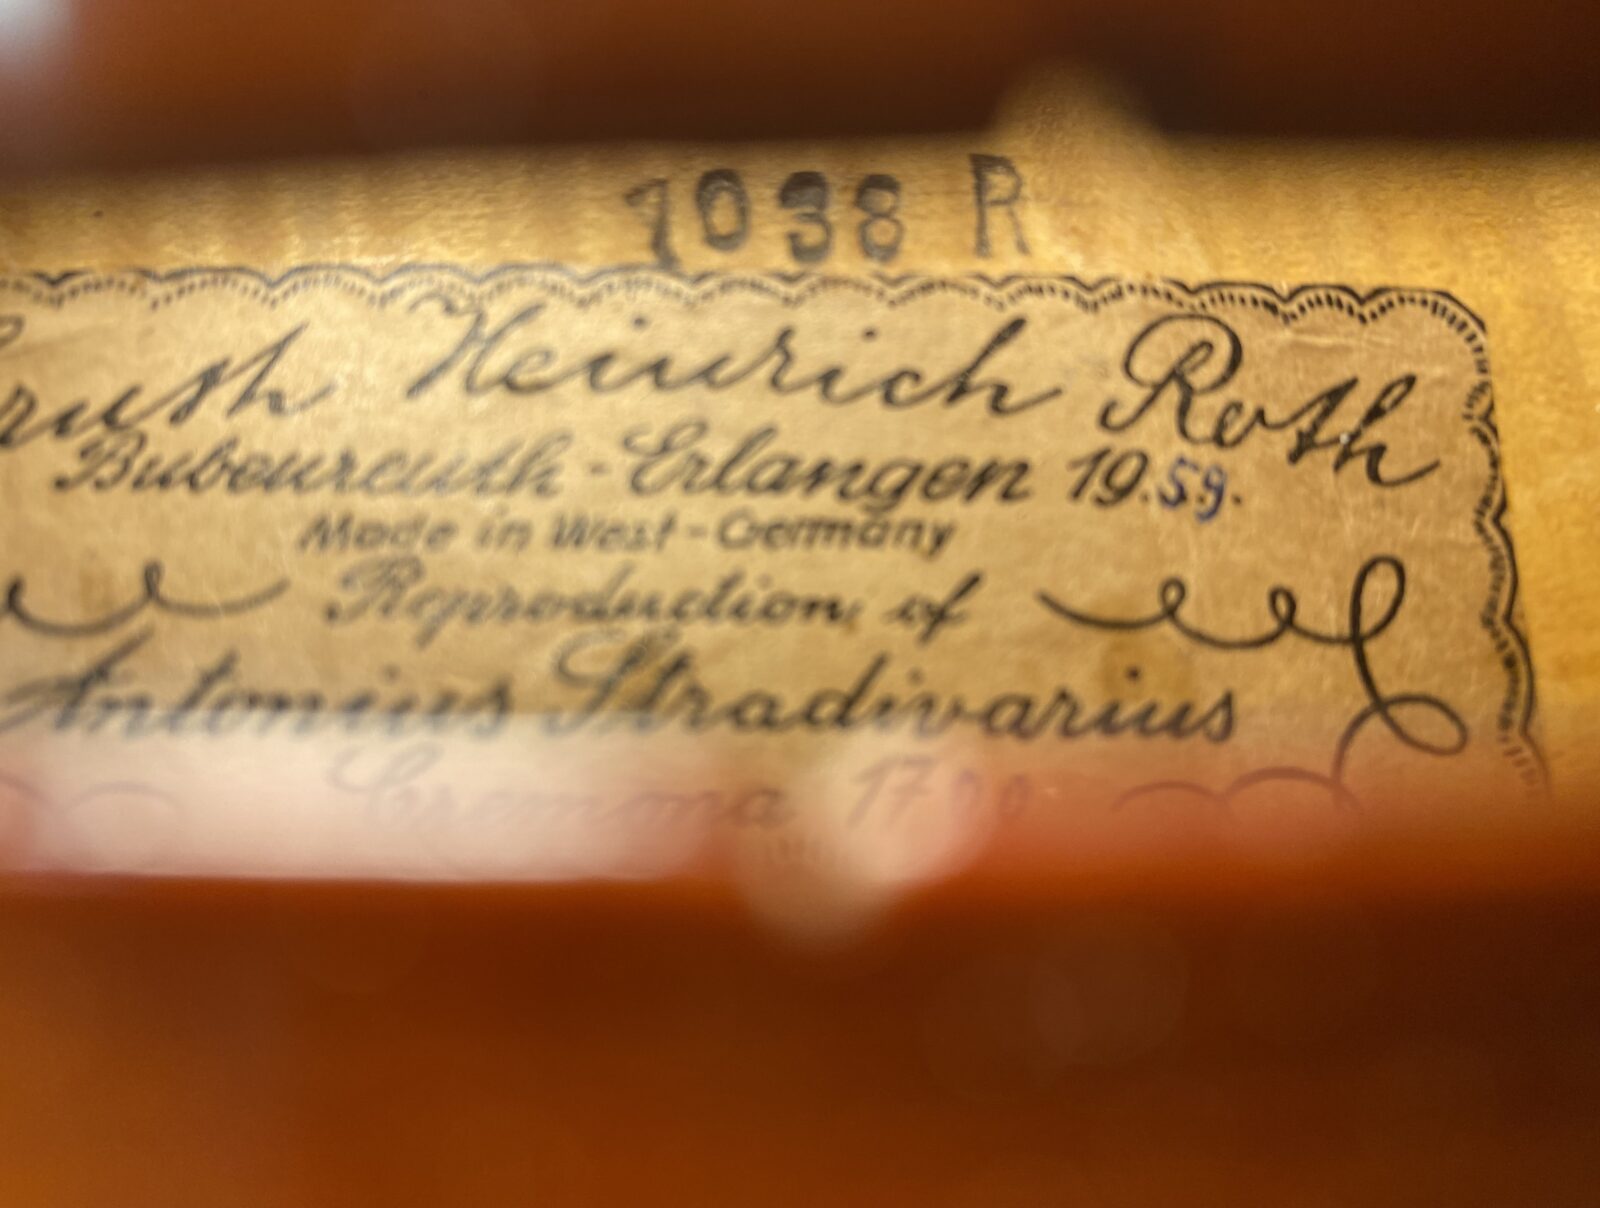 1038 R
Heinrich Roth
Bubenreuth-Erlangen 19.59.
Made in West-Germany
Reproduction of
Antonius Stradivarius
Cremona